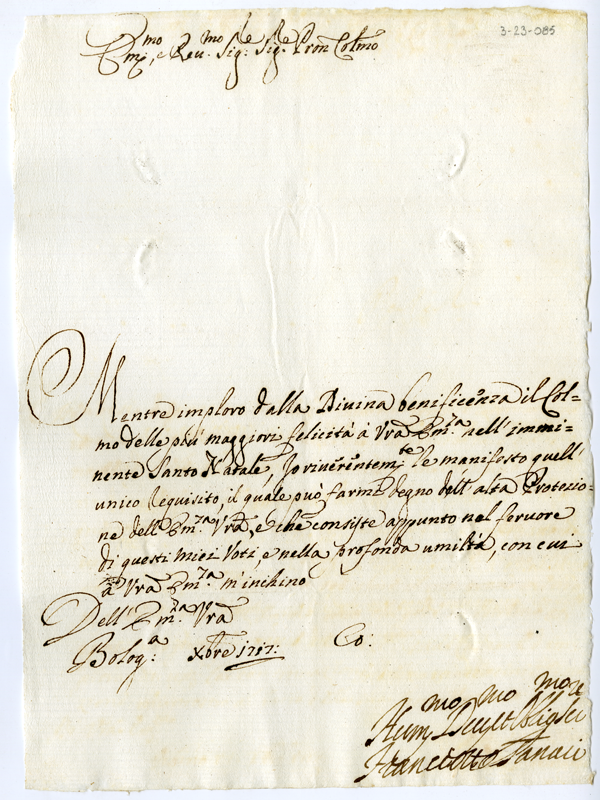 3-23-085
Em.mo, e Reu.mo Sig.re Sig.re Pron Colmo
Mentre imploro dalla Diuina beneficenza il Col-
mo delle più maggiori felicità à Vrã Em.za nell'immi-
nente Santo Natale, Io riuerentem.te le manifesto quell'
unico Requisito, il quale può farmi degno dell'alta Protezio-
ne dell'Em.za Vrã, e che consiste appunto nel feruore
di questi miei Voti, e nella profonda umiltà, con cui
à Vrã Em.za m'inchino
Dell'Em.za Vrã
Bolog.a Xbre 1717:
Co:
Hum.mo Deuot.mo Oblig.mo Seru.re
Francesco Tanari